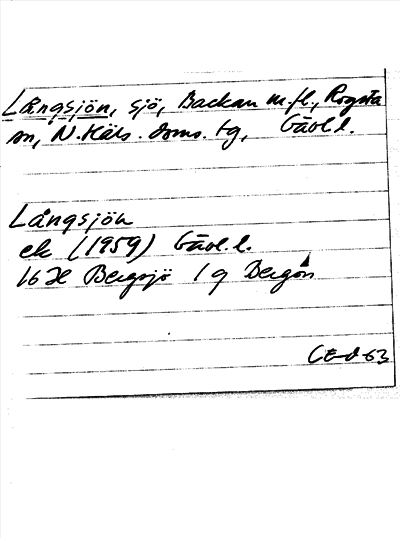 Långsjön, sjö, Backan m.fl., Rogsta
sn, N. Häls. doms. tg, Gävl.l.
Långsjön
ek (1959) Gävl.l.
16H Bergsjö 1g Bergön
CE-d-63